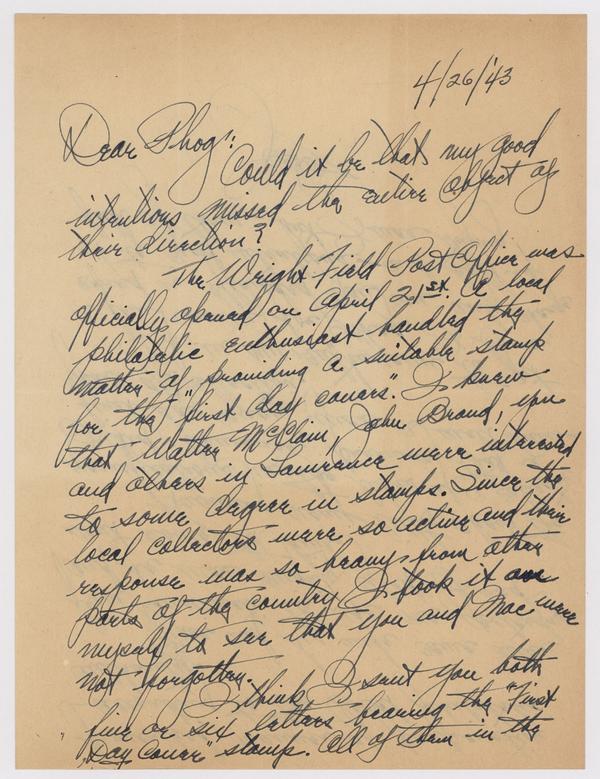 4/26/'43
Dear Phog:
Could it be that my good
intentions missed the entire object of
their direction?
The Wright Field Post Office was
officially opened on April 21st. A local
philatelic enthusiast handled the
matter of providing a suitable stamp
for the "first day covers." I knew
that Walter McClain, John Brand, you
and others in Lawrence were interested
to some degree in stamps. Since the
local collectors were so active and their
response was so heavy from other
parts of the country I took it on
myself to see that you and Mac were
not forgotten.
I think I sent you both
five or six letters bearing the "First
Day Cover" stamps. All of them in the